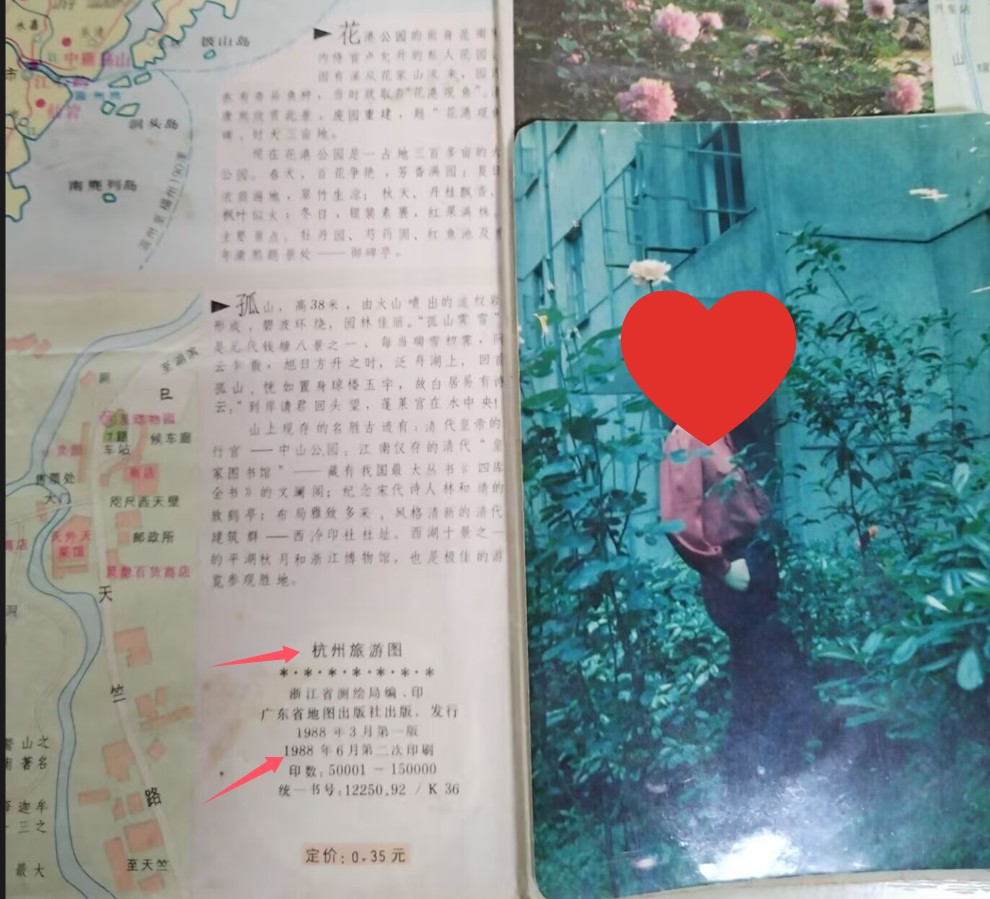 披山岛
洞头岛
南麂列岛
温州至福州190浬
花港公园的前身是南
内侍省卢允升的私人花园
因有溪从花家山流来,园
养有奇异鱼种,当时就取名"花港观鱼"
康熙欣赏此景,废园重建,题"花港观
碑,时大三亩地。
现在花港公园是一占地三百多亩的大
公园。春天,百花争艳,芳香满园;夏
浓荫遍地,翠竹生凉;秋天,丹桂飘香,
枫叶似火;冬日,银装素裹,红果满株。
主要景点:牡丹园、芍药圃、红鱼池及
年康熙题景处——御碑亭。
孤山,高38米,由火山喷出的流纹岩
形成,碧波环绕,园林佳丽。"孤山霁雪"
是元代钱塘八景之一,每当瑞雪初霁,
云乍散,旭日方升之时,泛舟湖上,回首
孤山,恍如置身琼楼玉宇,故白居易有诗
云:"到岸请君回头望,蓬莱宫在水中央!
山上现存的名胜古迹有:清代皇帝的
行宫——中山公园;江南仅存的清代"皇
家图书馆"——藏有我国最大丛书《四库
全书》的文澜阁;纪念宋代诗人林和靖的
放鹤亭;布局雅致多采,风格清新的清代
建筑群——西泠印社社址。西湖十景之一
的平湖秋月和浙江博物馆,也是极佳的游
览参观胜地。
杭州旅游图
*·*·*·*·*·*·*·*
浙江省测绘局编、印
广东省地图出版社出版、发行
1988年3月第一版
1988年6月第二次印刷
印数:50001-150000
统一书号:12250.92 / K 36
定价:0.35元
候车廊
车站
售票处
大门
咫尺西天壁
邮政所
商店
天外天
菜馆
天
竺
路
至天竺
最大
汽车站
山